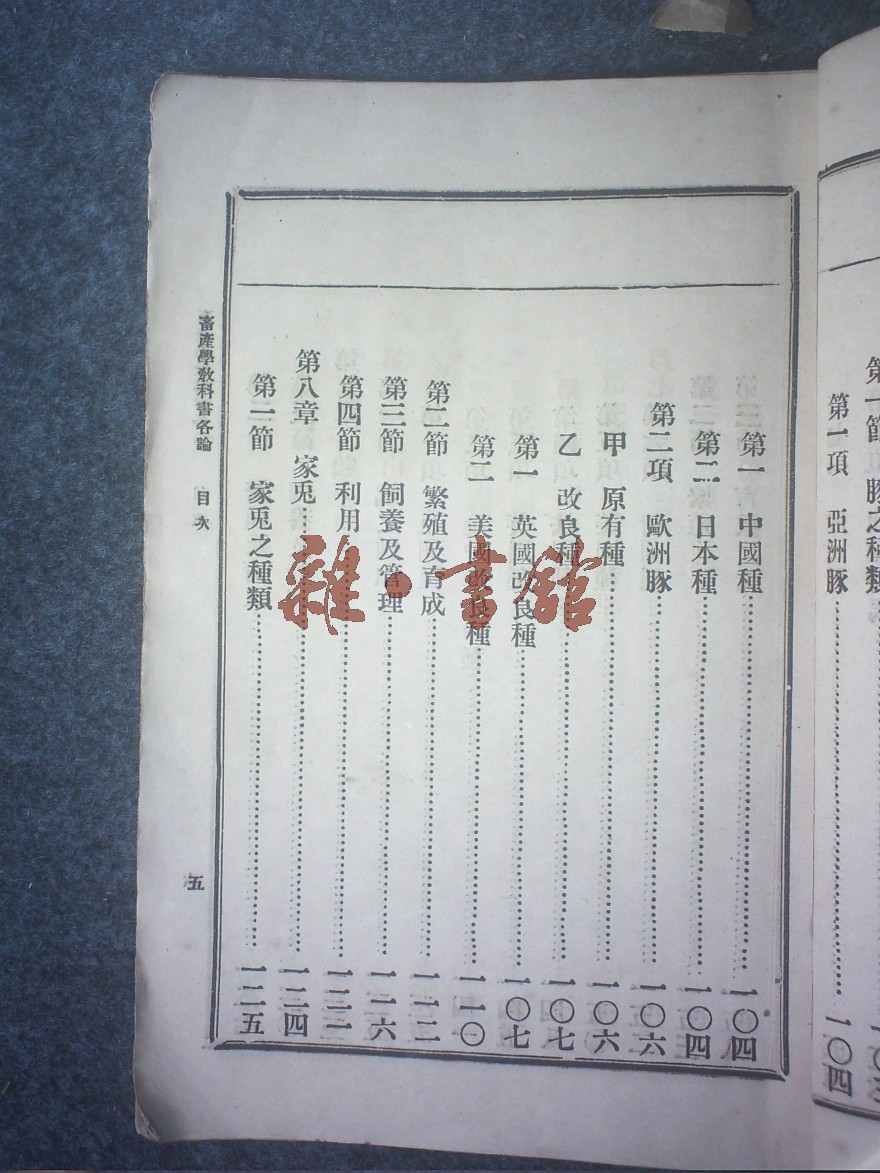 第一項　亞洲豚……一〇四
第一　中國種……一〇四
第二　日本種……一〇四
第二項　歐洲豚……一〇六
甲　原有種……一〇六
乙　改良種……一〇七
第一　英國改良種……一〇七
第二　美國改良種……一一〇
第二節　繁殖及育成……一一二
第三節　飼養及管理……一一六
第四節　利用……一二二
第八章　家兎……一二四
第一節　家兎之種類……一二五
畜產學教科書各論　目次　五
雜·書館